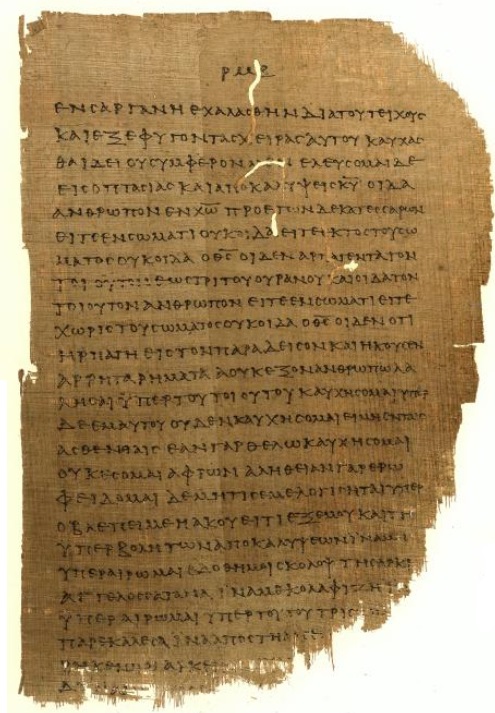 ενϲαργανηεχαλαϲθηνδιατουτειχουϲ
καιεξεφυγονταϲχειραϲαυτουκαυχαϲ
θαιδειουϲυμφερον ελευϲομαιδε
ειϲοπταϲιαϲκαιαποκαλυψειϲκ̅υ̅ οιδα
ανθρωπονενχ̅ω̅ προετωνδεκατεϲϲαρων
ειτεενϲωματιουκοιδαειτεεκτοϲτουϲω
ματοϲουκοιδα οθ̅ϲ̅ οιδεναρπαγενταιον
τοιουτονεωϲτριτουουρανουκαιοιδατον
τοιουτονανθρωπονειτεενϲωματιειτε
χωριϲτουϲωματοϲουκοιδα οθ̅ϲ̅ οιδενοτι
ηρπαγηειϲτονπαραδειϲονκαιηκουϲεν
αρρηταρηματααουκεξονανθρωπωλα
ληϲαιϋπερτουτοιουτουκαυχηϲομαιυπερ
δεεμαυτουουδενκαυχηϲομαιειμηενταιϲ
αϲθενειαιϲ εανγαρθελωκαυχηϲομαι
ουκεϲομαιαφρων αληθειανγαρερω
φειδομαι δεμητιϲεμελογιϲηταιυπερ
οβλεπειμεηακουειτιεξεμουκαιτη
ϋπερβοληντωναποκαλυψεωνιναμη
υπεραιρωμαιεδοθημοιϲκολοψτηϲαρκι
αγγελοϲϲαταναϊναμεκολαφιζη
υπεραιρωμαιυπερτουτουτριϲ
παρεκαλεϲαϊνααποστη